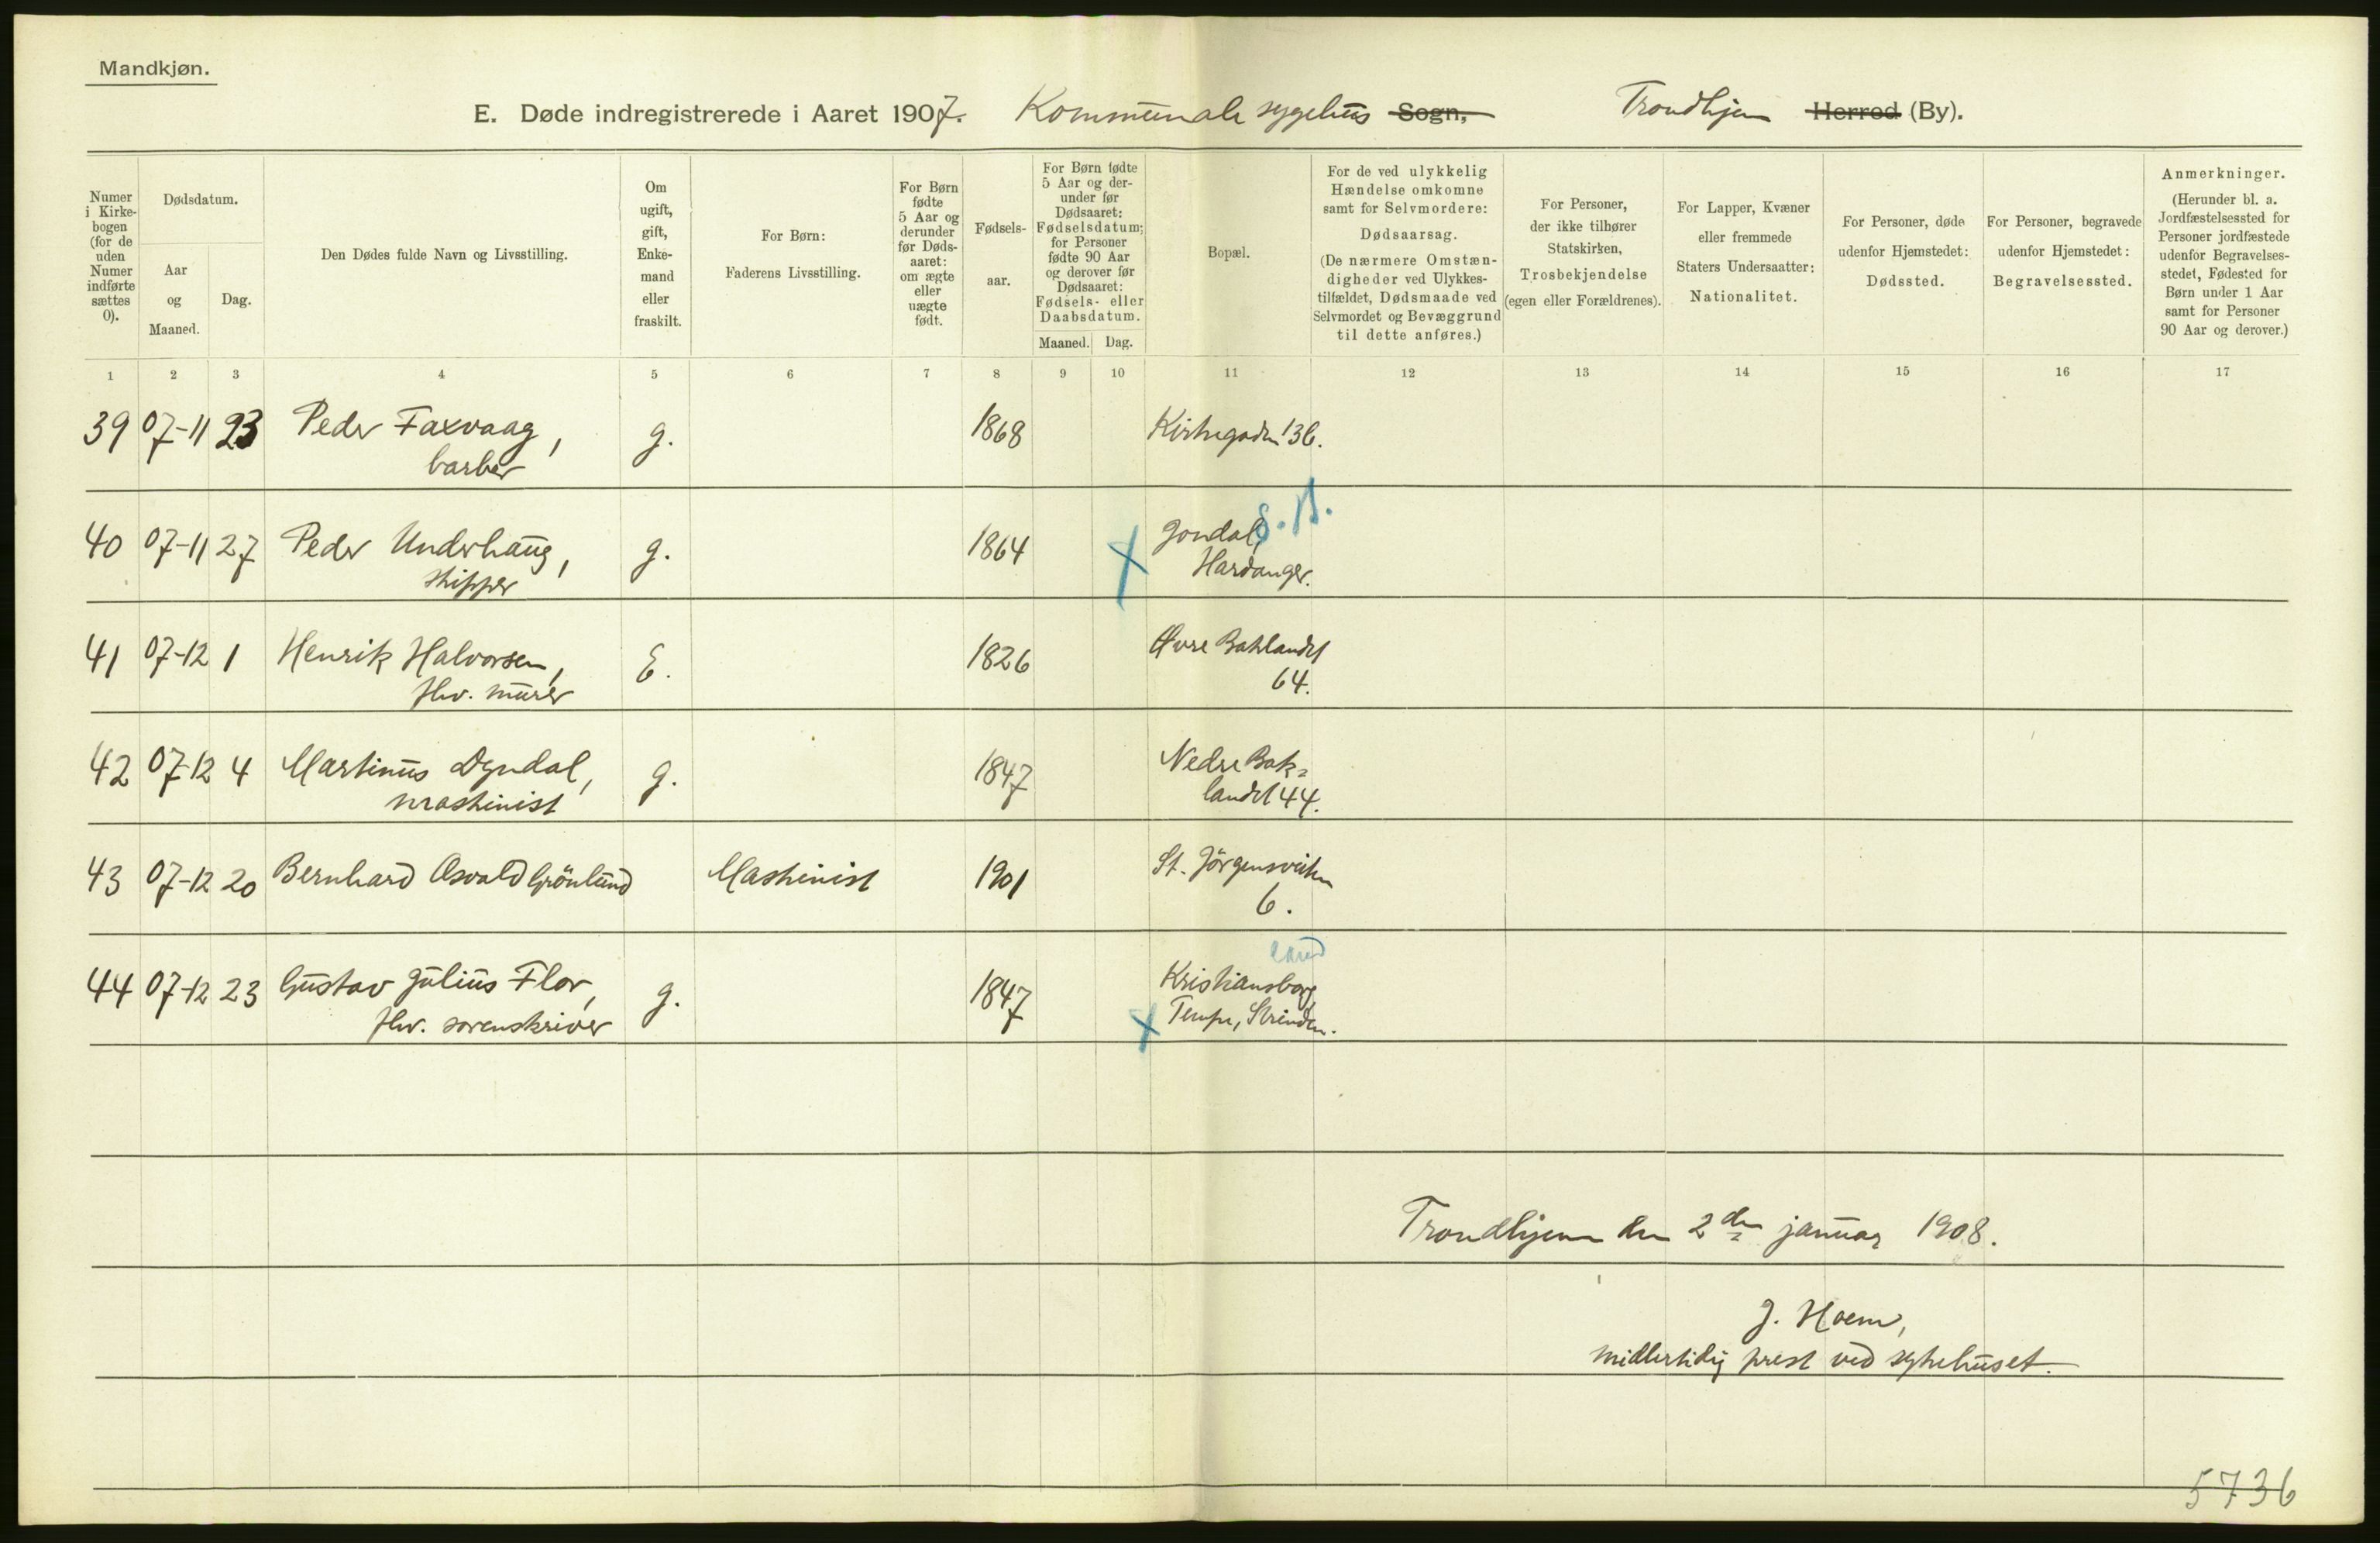 Mandkjøn.
E. Døde indregistrerede i Aaret 1907. Kommunale sygehus Sogn, Trondhjem Herred (By).
Numer
i Kirke-
bogen
(for de
uden
Numer
indførte
sættes
0).
Dødsdatum.
Aar
og
Maaned.
Dag.
Den Dødes fulde Navn og Livsstilling.
Om
ugift,
gift,
Enke-
mand
eller
fraskilt.
For Børn:
Faderens Livsstilling.
For Børn
fødte
5 Aar og
derunder
før Døds-
aaret:
om ægte
eller
uægte
født.
Fødsels-
aar.
For Børn fødte
5 Aar og der-
under før
Dødsaaret:
Fødselsdatum;
for Personer
fødte 90 Aar
og derover før
Dødsaaret:
Fødsels- eller
Daabsdatum.
Maaned. Dag.
Bopæl.
For de ved ulykkelig
Hændelse omkomne
samt for Selvmordere:
Dødsaarsag.
(De nærmere Omstæn-
digheder ved Ulykkes-
tilfældet, Dødsmaade ved
Selvmordet og Bevæggrund
til dette anføres.)
For Personer,
der ikke tilhører
Statskirken,
Trosbekjendelse
(egen eller Forældrenes).
For Lapper, Kvæner
eller fremmede
Staters Undersaatter:
Nationalitet.
For Personer, døde
udenfor Hjemstedet:
Dødssted.
For Personer, begravede
udenfor Hjemstedet:
Begravelsessted.
Anmerkninger.
(Herunder bl. a.
Jordfæstelsessted for
Personer jordfæstede
udenfor Begravelses-
stedet, Fødested for
Børn under 1 Aar
samt for Personer
90 Aar og derover.)
1 2 3 4 5 6 7 8 9 10 11 12 13 14 15 16 17
39 07-11 23 Peder Faxvaag, g. 1868 Kirkegaden 36.
barber
40 07-11 27 Peder Underhaug, g. 1864 X Jondal, S. B.
skipper Hardanger.
41 07-12 1 Henrik Halvorsen, E. 1826 Øvre Baklandet
fhv. murer 64.
42 07-12 4 Martinus Dyndal, g. 1847 Nedre Bak=
maskinist landet 44.
43 07-12 20 Bernhard Osvald Grönlund Maskinist 1901 St. Jörgensveiten
6.
land
44 07-12 23 Gustav Julius Flor, g. 1847 Kristiansborg
fhv. sorenskriver X Tempe, Strinden.
Trondhjem den 2den januar 1908.
J. Hoem,
midlertidig prest ved sykehuset.
5736